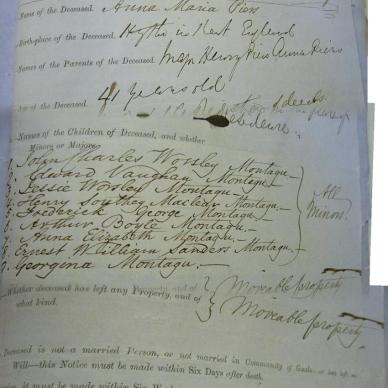 Name of the Deceased. Anna Maria Piers
Birth-place of the Deceased. Hythe in Kent England
Names of the Parents of the Deceased. Major Henry Piers Anna Piers
Age of the Deceased. 41 years old
Names of the Children of Deceased, and whether
Minors or Majors.
1. John Charles Worsley Montagu.
2. Edward Vaughan Montagu.
3. Jessie Worsley Montagu.
4. Henry Southey Maclear Montagu.
5. Frederick George Montagu.
6. Arthur Boyle Montagu.
7. Anna Elizabeth Montagu.
8. Ernest William Sanders Montagu.
9. Georgina Montagu.
All
Minors.
Whether deceased has left any Property, and of
what kind.
Moveable property
Moveable property
Deceased is not a married Person, or not married in Community of Goods or has left
Will—this Notice must be made within Six Days after death,
it must be made within Six